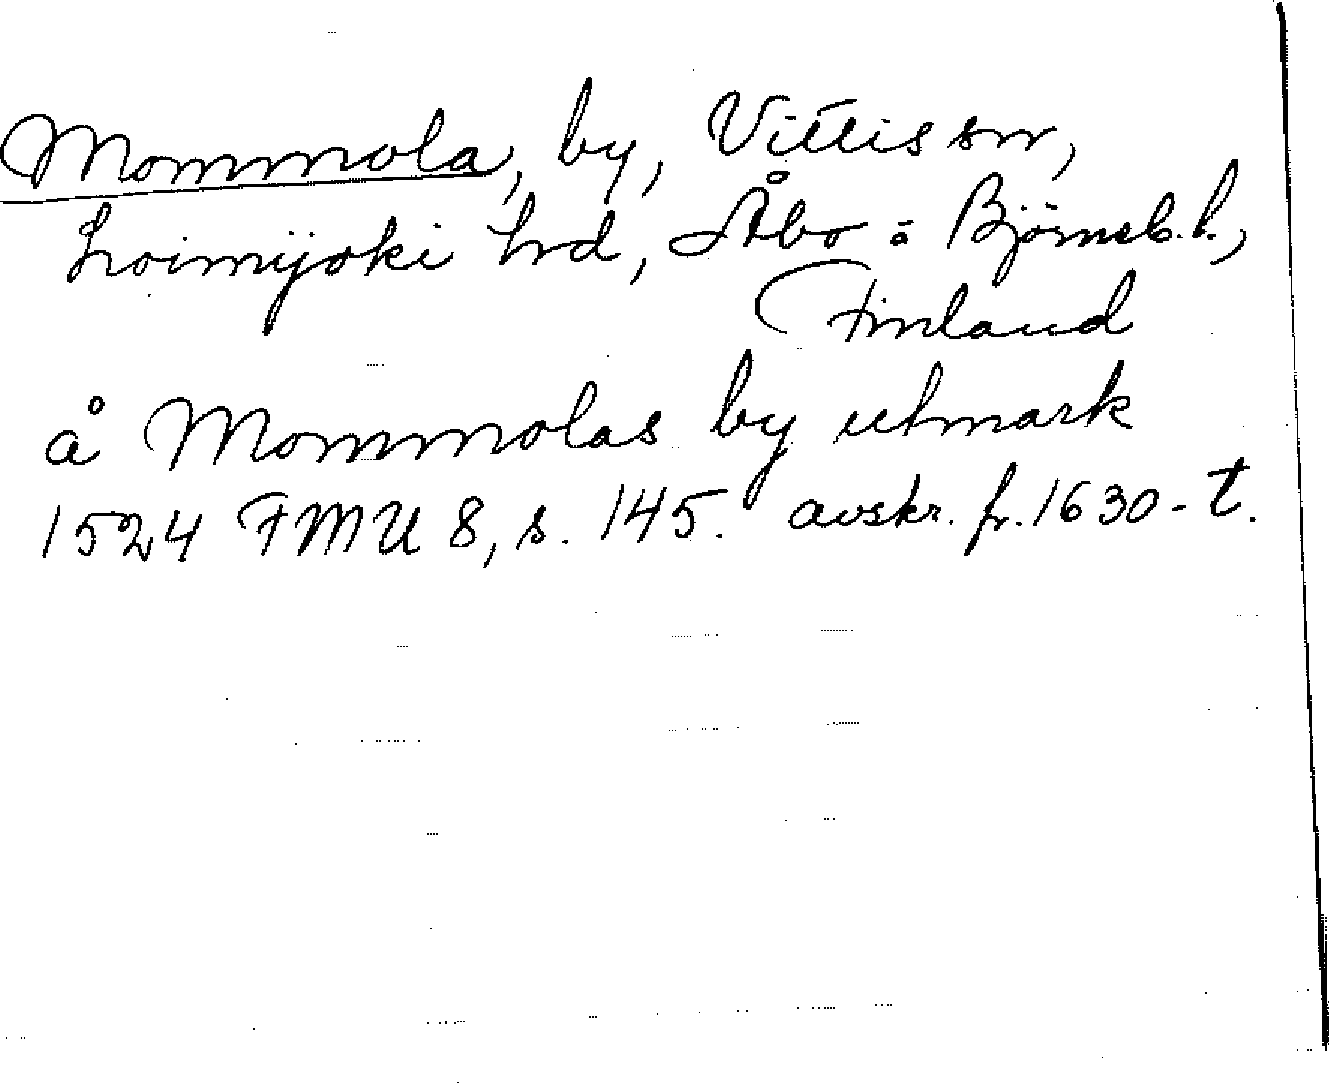 Mommola, by, Vittis sn,
Loimijoki hd, Åbo o. Björneb. l.,
Finland
å Mommolas by utmark
1524 FMU 8, s. 145. avskr. fr. 1630-t.